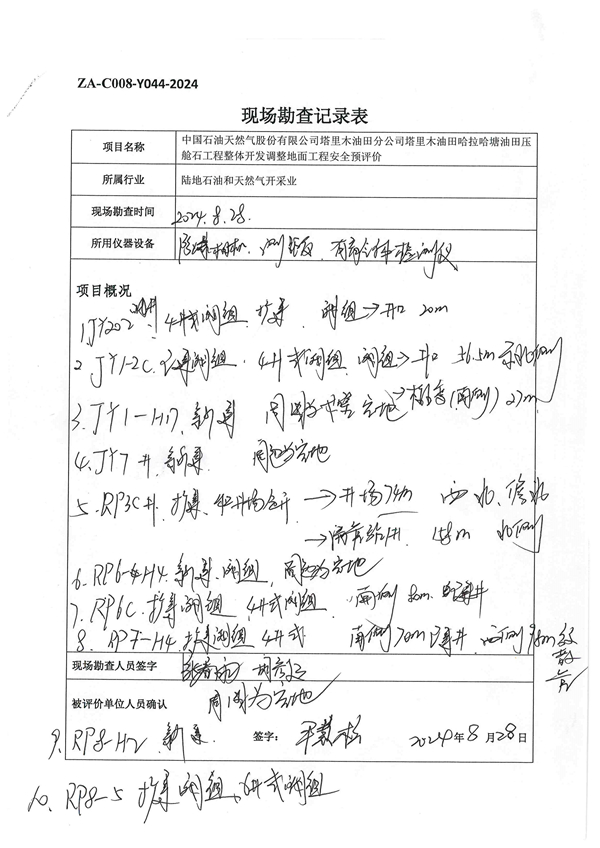 ZA-C008-Y044-2024
现场勘查记录表
项目名称 中国石油天然气股份有限公司塔里木油田分公司塔里木油田哈拉哈塘油田压
舱石工程整体开发调整地面工程安全预评价
所属行业 陆地石油和天然气开采业
现场勘查时间 2024.8.28.
所用仪器设备 测距仪、有毒气体检测仪
项目概况
1. JY202 4井式阀组 扩建 阀组→井口 20m
2. JY1-2C 阀组. 4井式阀组 阀组→井口 56.5m
3. JY1-H17 新建 周围为 空地→ (南侧) 27m
4. JY7井 新建. 周围为空地
5. RP3C井 扩建 →井场74m 西北
→ 158m 北侧
6. RP6-4H4. 新建 阀组 周围为空地
7. RP6C. 扩建阀组 4井式阀组 南侧80m
8. RP7-H4. 扩建阀组 4井式 南侧70m 西侧98m
现场勘查人员签字
被评价单位人员确认 周围为空地
9. RP8-H2 新建. 签字： 2024年8月28日
10. RP8-5 扩建阀组、6井式阀组